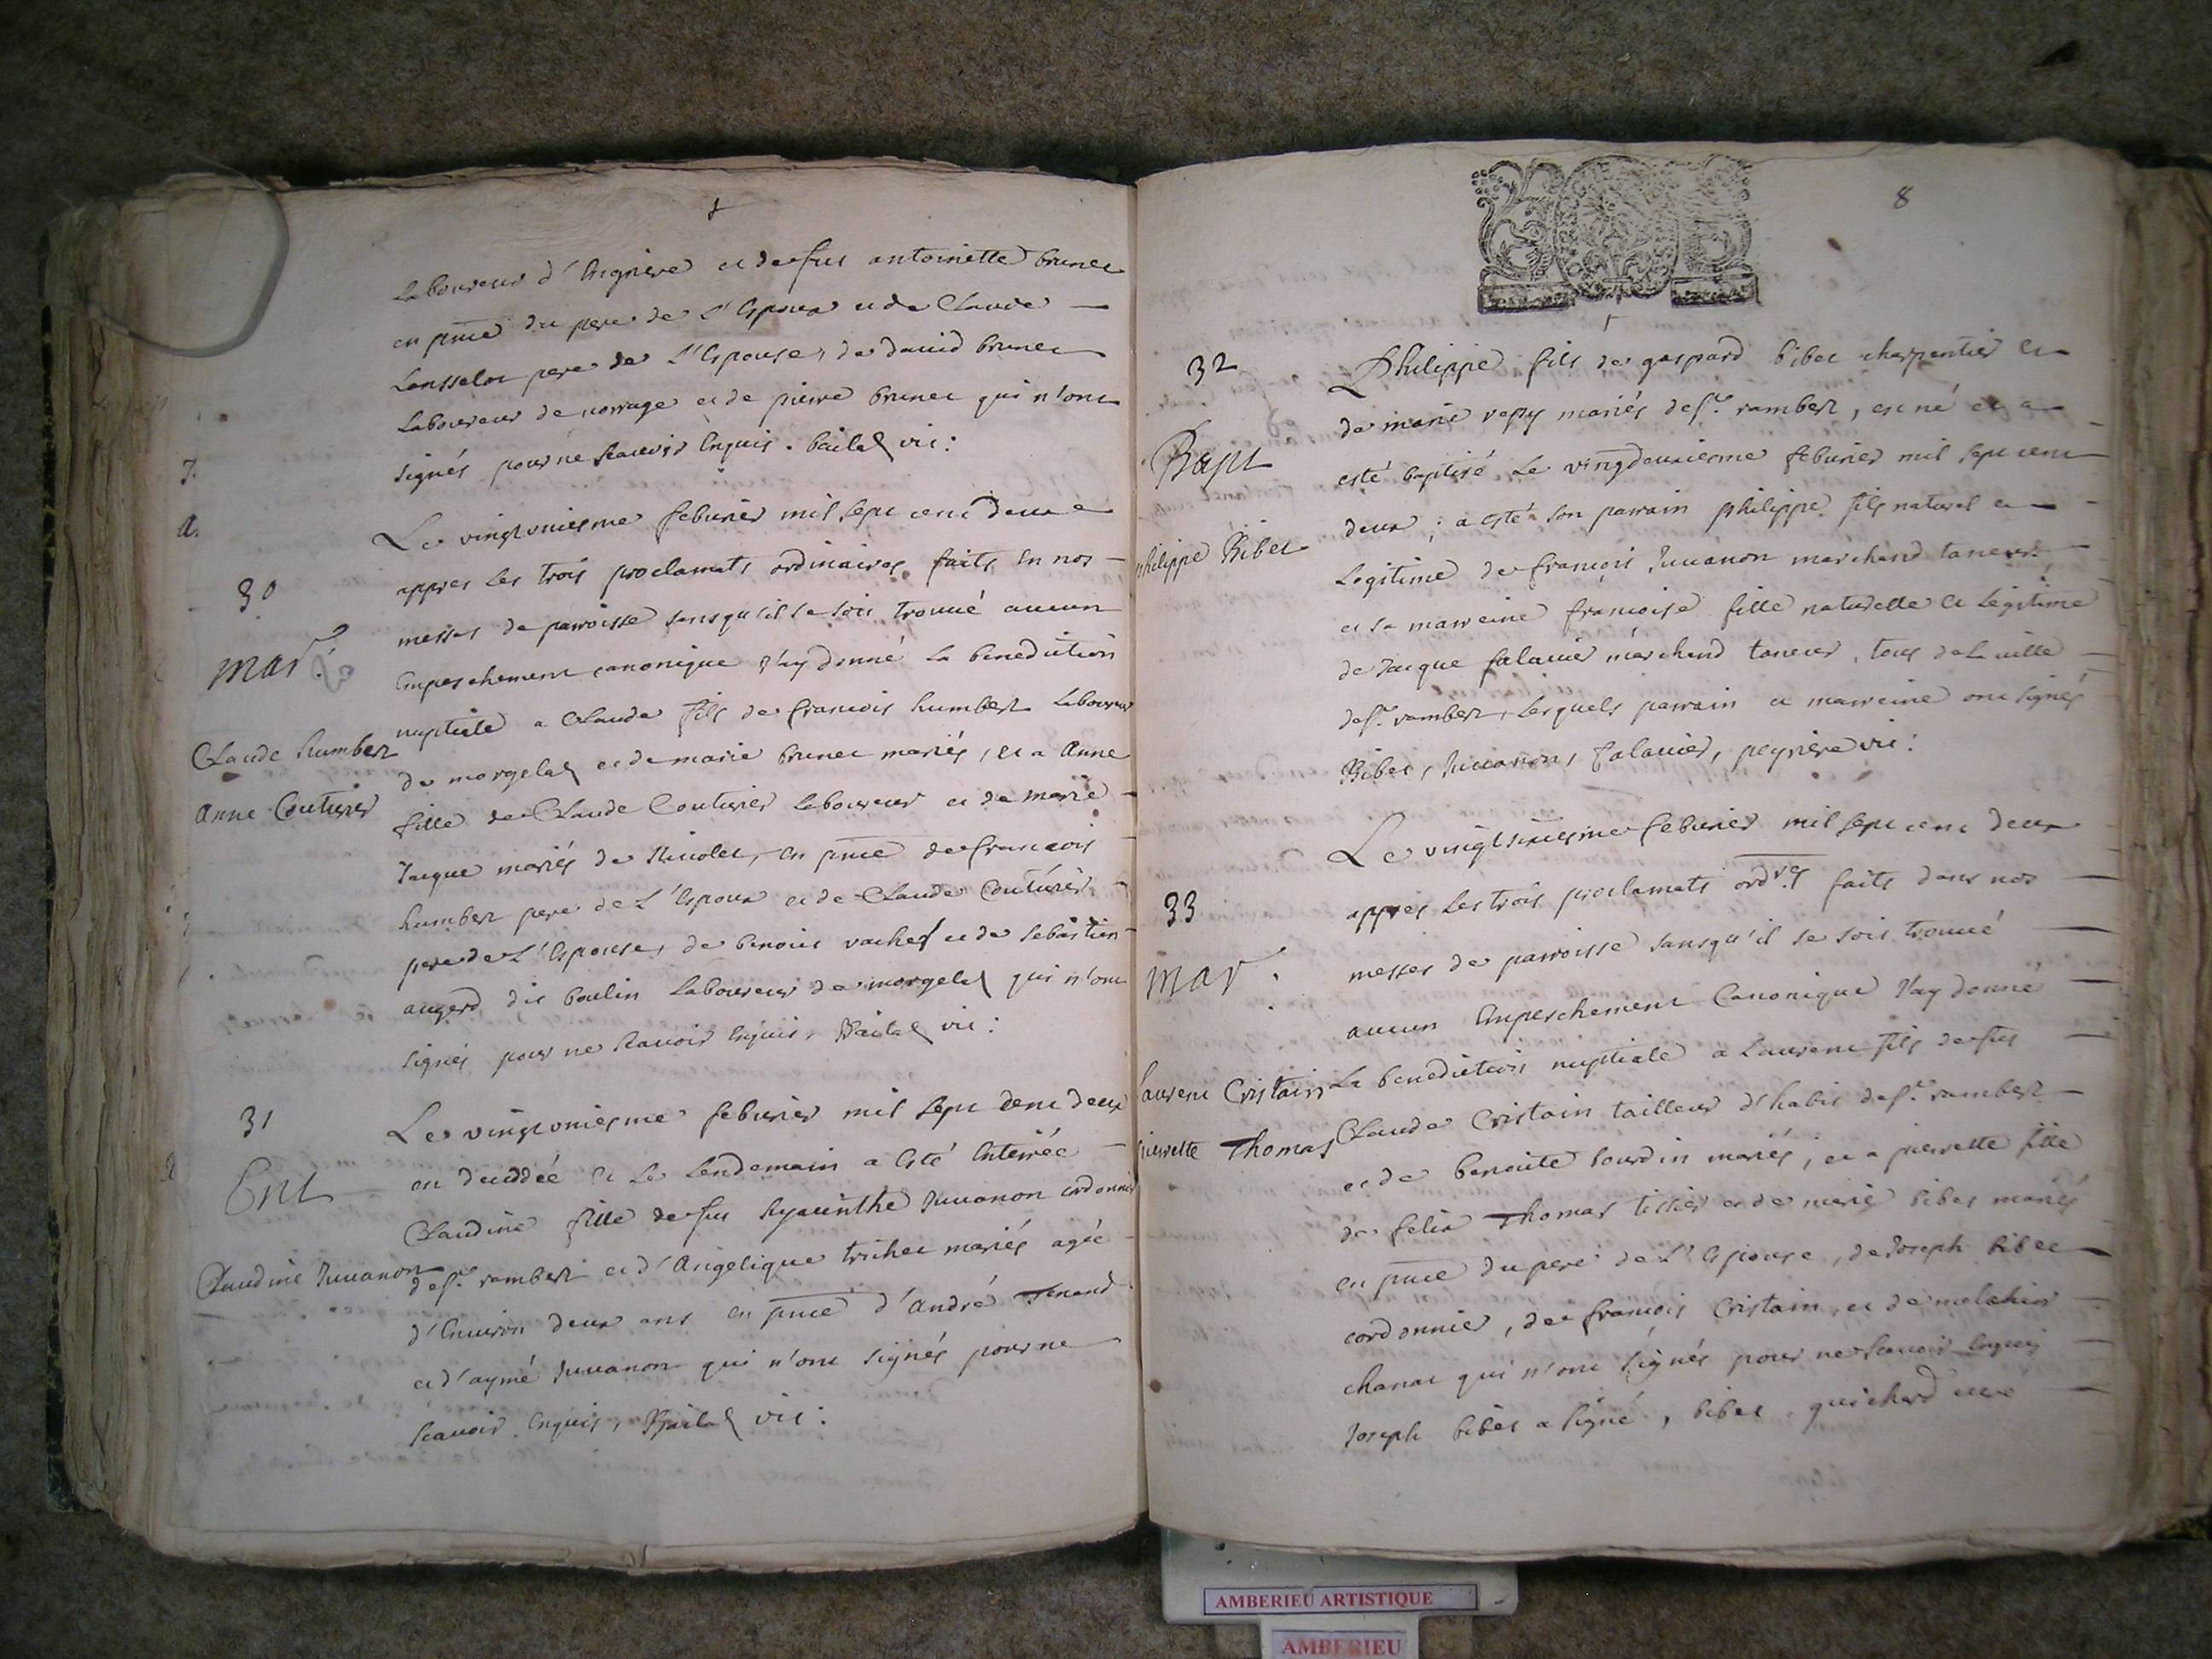 laboureur d'Argnieve et de fue antoinette brunet
en pnce du pere de L'Espoux et de Claude
Lansselot pere de L'Espouse, de david brunet
Laboureur de et de pierre brunet qui n'ont
signés pour ne scavoir Enquis. Bailod vic:
Le vingtoniesme feburier mil sept cent deux
30
appres les trois proclamats ordinaires faits en nos
messes de parroisse sans qu'il se soit trouué aucun
mar.
Empeschement canonique J'ay donné la benediction
nuptiale a Claude fils de francois humbert Laboureur
Claude humbert
de morgelas et de marie brunet mariés, et a Anne
Anne Couturier
fille de Claude Couturier laboureur et de marie
Jacque mariés de Nivolet, en pnce de francois
humbert pere de L'Espoux et de Claude Couturier
pere de L'Espouse, de benoict vachet et de sebastien
augerd dit boulin laboureur de morgelas qui n'ont
signés pour ne scavoir Enquis, Bailod vic:
31
Le vingtoniesme feburier mil sept cent deux
Ent
est deceddée et le Lendemain a esté Enterrée
Claudine fille de feu hyacinthe Juuanon cordonnier
Claudine Juuanon
de st. rambert et d'Angelique trichet mariés agée
d'Enuiron deux ans en pnce d'André Tenand
et d'aymé Juuanon qui n'ont signés pour ne
scauoir Enquis, Bailod vic:
8
32
Philippe fils de gaspard bibet charpentier et
de marie repy mariés de st. rambert, est né et a
Bapt
esté baptisé Le vingdeuxiesme feburier mil sept cent
philippe Bibet
deux; a esté son parrain philippe fils naturel et
Legitime de françois Juuanon marchand taneur
et sa marreine françoise fille naturelle et Legitime
de Jacque falauier marchand taneur, tous de la uille
de st. rambert, Lesquels parrain et marreine ont signés
Bibet, Juuanon, falauier, peyriere vic:
Le vingtsixiesme feburier mil sept cent deux
33
appres les trois proclamats ordres faits dans nos
messes de parroisse sans qu'il se soit trouué
mar.
aucun Empeschement Canonique J'ay donné
Laurent Cristain
La benediction nuptiale a Laurent fils de feu
Claude Cristain tailleur d'habit de st. rambert
pierrette Thomas
et de benoite sourdin mariés, et a pierrette fille
de felix Thomas tissier et de marie bibet mariés
en pnce du pere de L'Espouse, de Joseph bibet
cordonnier, de françois Cristain, et de melchior
chanat qui n'ont signés pour ne scauoir Enquis
Joseph bibet a signé, bibet, guichard curé
AMBERIEU ARTISTIQUE
AMBERIEU